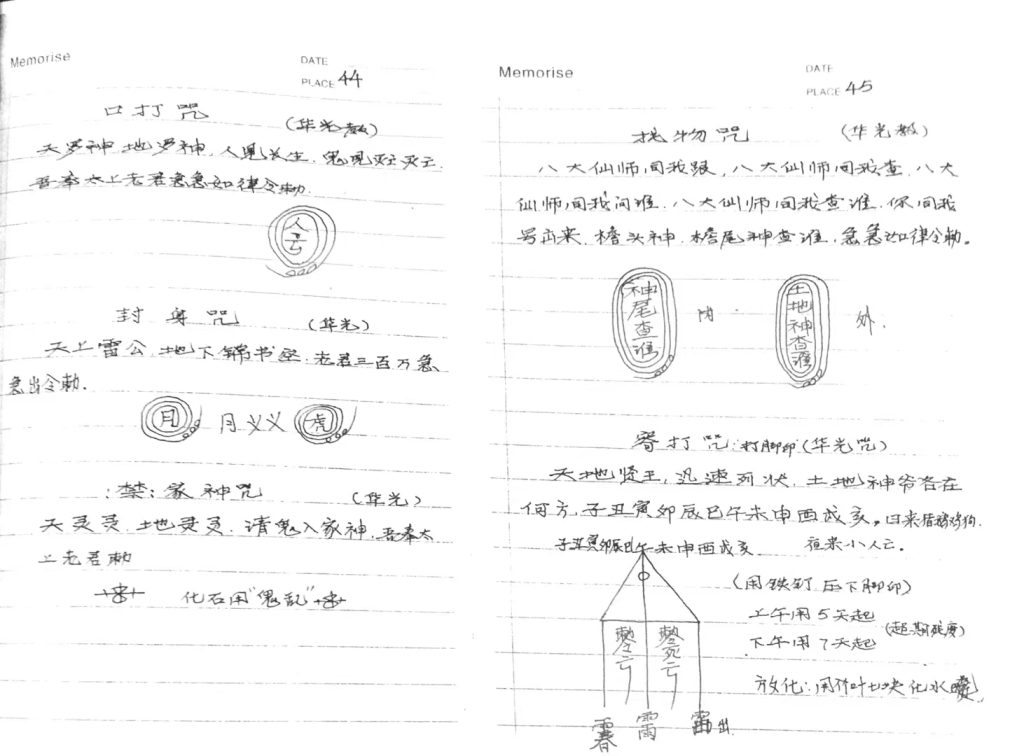 Memorise
DATE
PLACE 44
口打咒 (华光教)
天罗神,地罗神,人见长生,鬼见灭亡灭亡.
吾奉太上老君急急如律令勅.
封身咒 (华光)
天上雷公,地下锦书座,老君三百万急
急出令勅.
月 月 虎
禁: 家神咒 (华光)
天灵灵,地灵灵,请鬼入家神,吾奉太
上老君勅
化石用"鬼乱"
Memorise
DATE
PLACE 45
找物咒 (华光教)
八大仙师同我跟,八大仙师同我查,八大
仙师同我问谁.八大仙师同我查谁.你同我
写出来.檐头神.檐尾神查谁,急急如律令勅。
神尾查谁 内.
土地神查谁 外.
打咒:打脚印(华光咒)
天地贤王,迅速列状,土地神爷各在
何方,子丑寅卯辰巳午未申酉戌亥。
子丑寅卯辰巳午未申酉戌亥.
(用铁钉 压下脚印)
上午用5天起
下午用7天起
放化:用竹叶七块化水